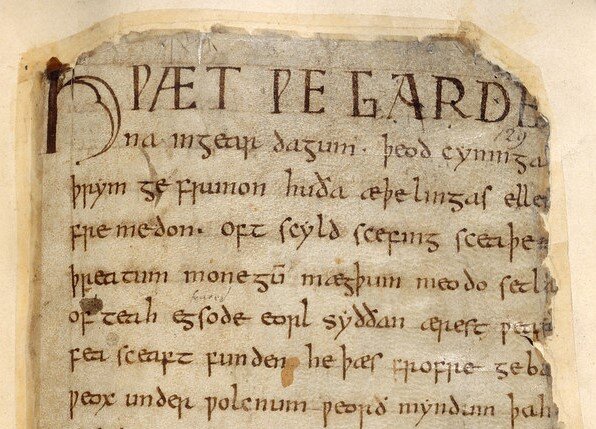 HǷÆT ǷE GARDE
129
na ingear dagum. þeod cyninga
þrym ge frunon huða æþelingas elle
fre medon. oft scyld scefing sceaþe
þreatum monegū mægþum meodo setla
of teah egsode eorl syððan ærest ƿear
fea sceaft funden he þæs frofre geba
ƿeox under ƿolcnum ƿeorð myndum þah